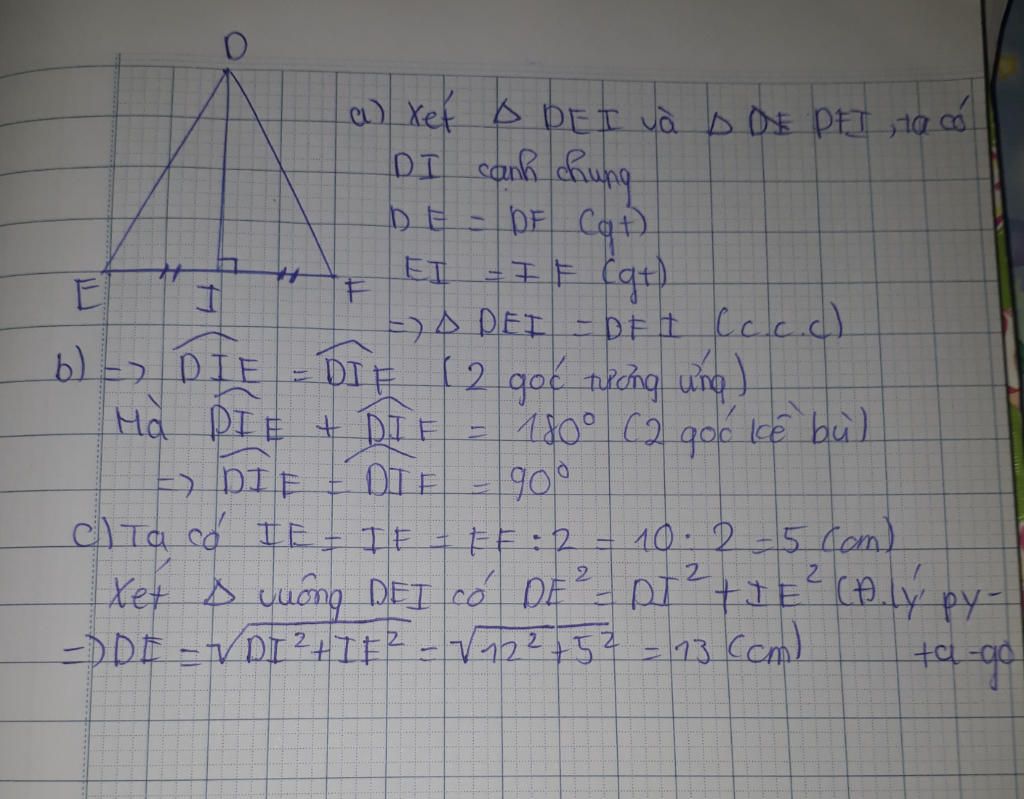 D
a) Xét Δ DEI và Δ DE DFI, ta có
DI cạnh chung
DE = DF (gt)
EI = IF (gt)
E I F
=> Δ DEI = DFI (c.c.c)
b) => DIE = DIF (2 góc tương ứng)
Mà DIE + DIF = 180° (2 góc kề bù)
=> DIE = DIF = 90°
c) Ta có IE = IF = EF : 2 = 10 : 2 = 5 (cm)
Xét Δ vuông DEI có DE² = DI² + IE² (Đ.lý py-
=> DE = √DI² + IE² = √12² + 5² = 13 (cm) ta-go